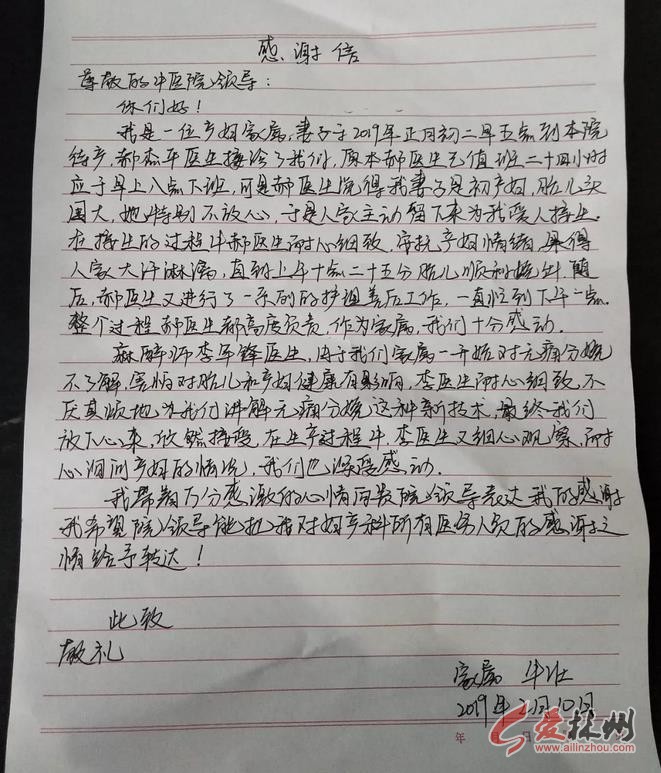 感谢信
尊敬的中医院领导：
你们好！
我是一位产妇家属，妻子于2019年正月初二早五点到本院
待产，郝杰平医生接诊了我们，原本郝医生已值班二十四小时
应于早上八点下班，可是郝医生觉得我妻子是初产妇，胎儿头
围大，她特别不放心，于是人家主动留下来为我爱人接生。
在接生的过程中郝医生耐心细致，安抚产妇情绪，累得
人家大汗淋漓，直到上午十点二十五分胎儿顺利娩出，随
后，郝医生又进行了一系列的护理善后工作，一直忙到下午一点。
整个过程郝医生都高度负责，作为家属，我们十分感动。
麻醉师李军锋医生，由于我们家属一开始对无痛分娩
不了解，害怕对胎儿和产妇健康有影响，李医生耐心细致，不
厌其烦地为我们讲解无痛分娩这种新技术，最终我们
放下心来，欣然接受，在生产过程中，李医生又细心观察，耐
心询问产妇的情况，我们也深受感动。
我带着万分感激的心情向贵院领导表达我的感谢
我希望院领导能把我对妇产科所有医务人员的感谢之
情给予转达！
此致
敬礼
家属 牛壮
2019年2月10日
年 日
爱林州
www.ailinzhou.com